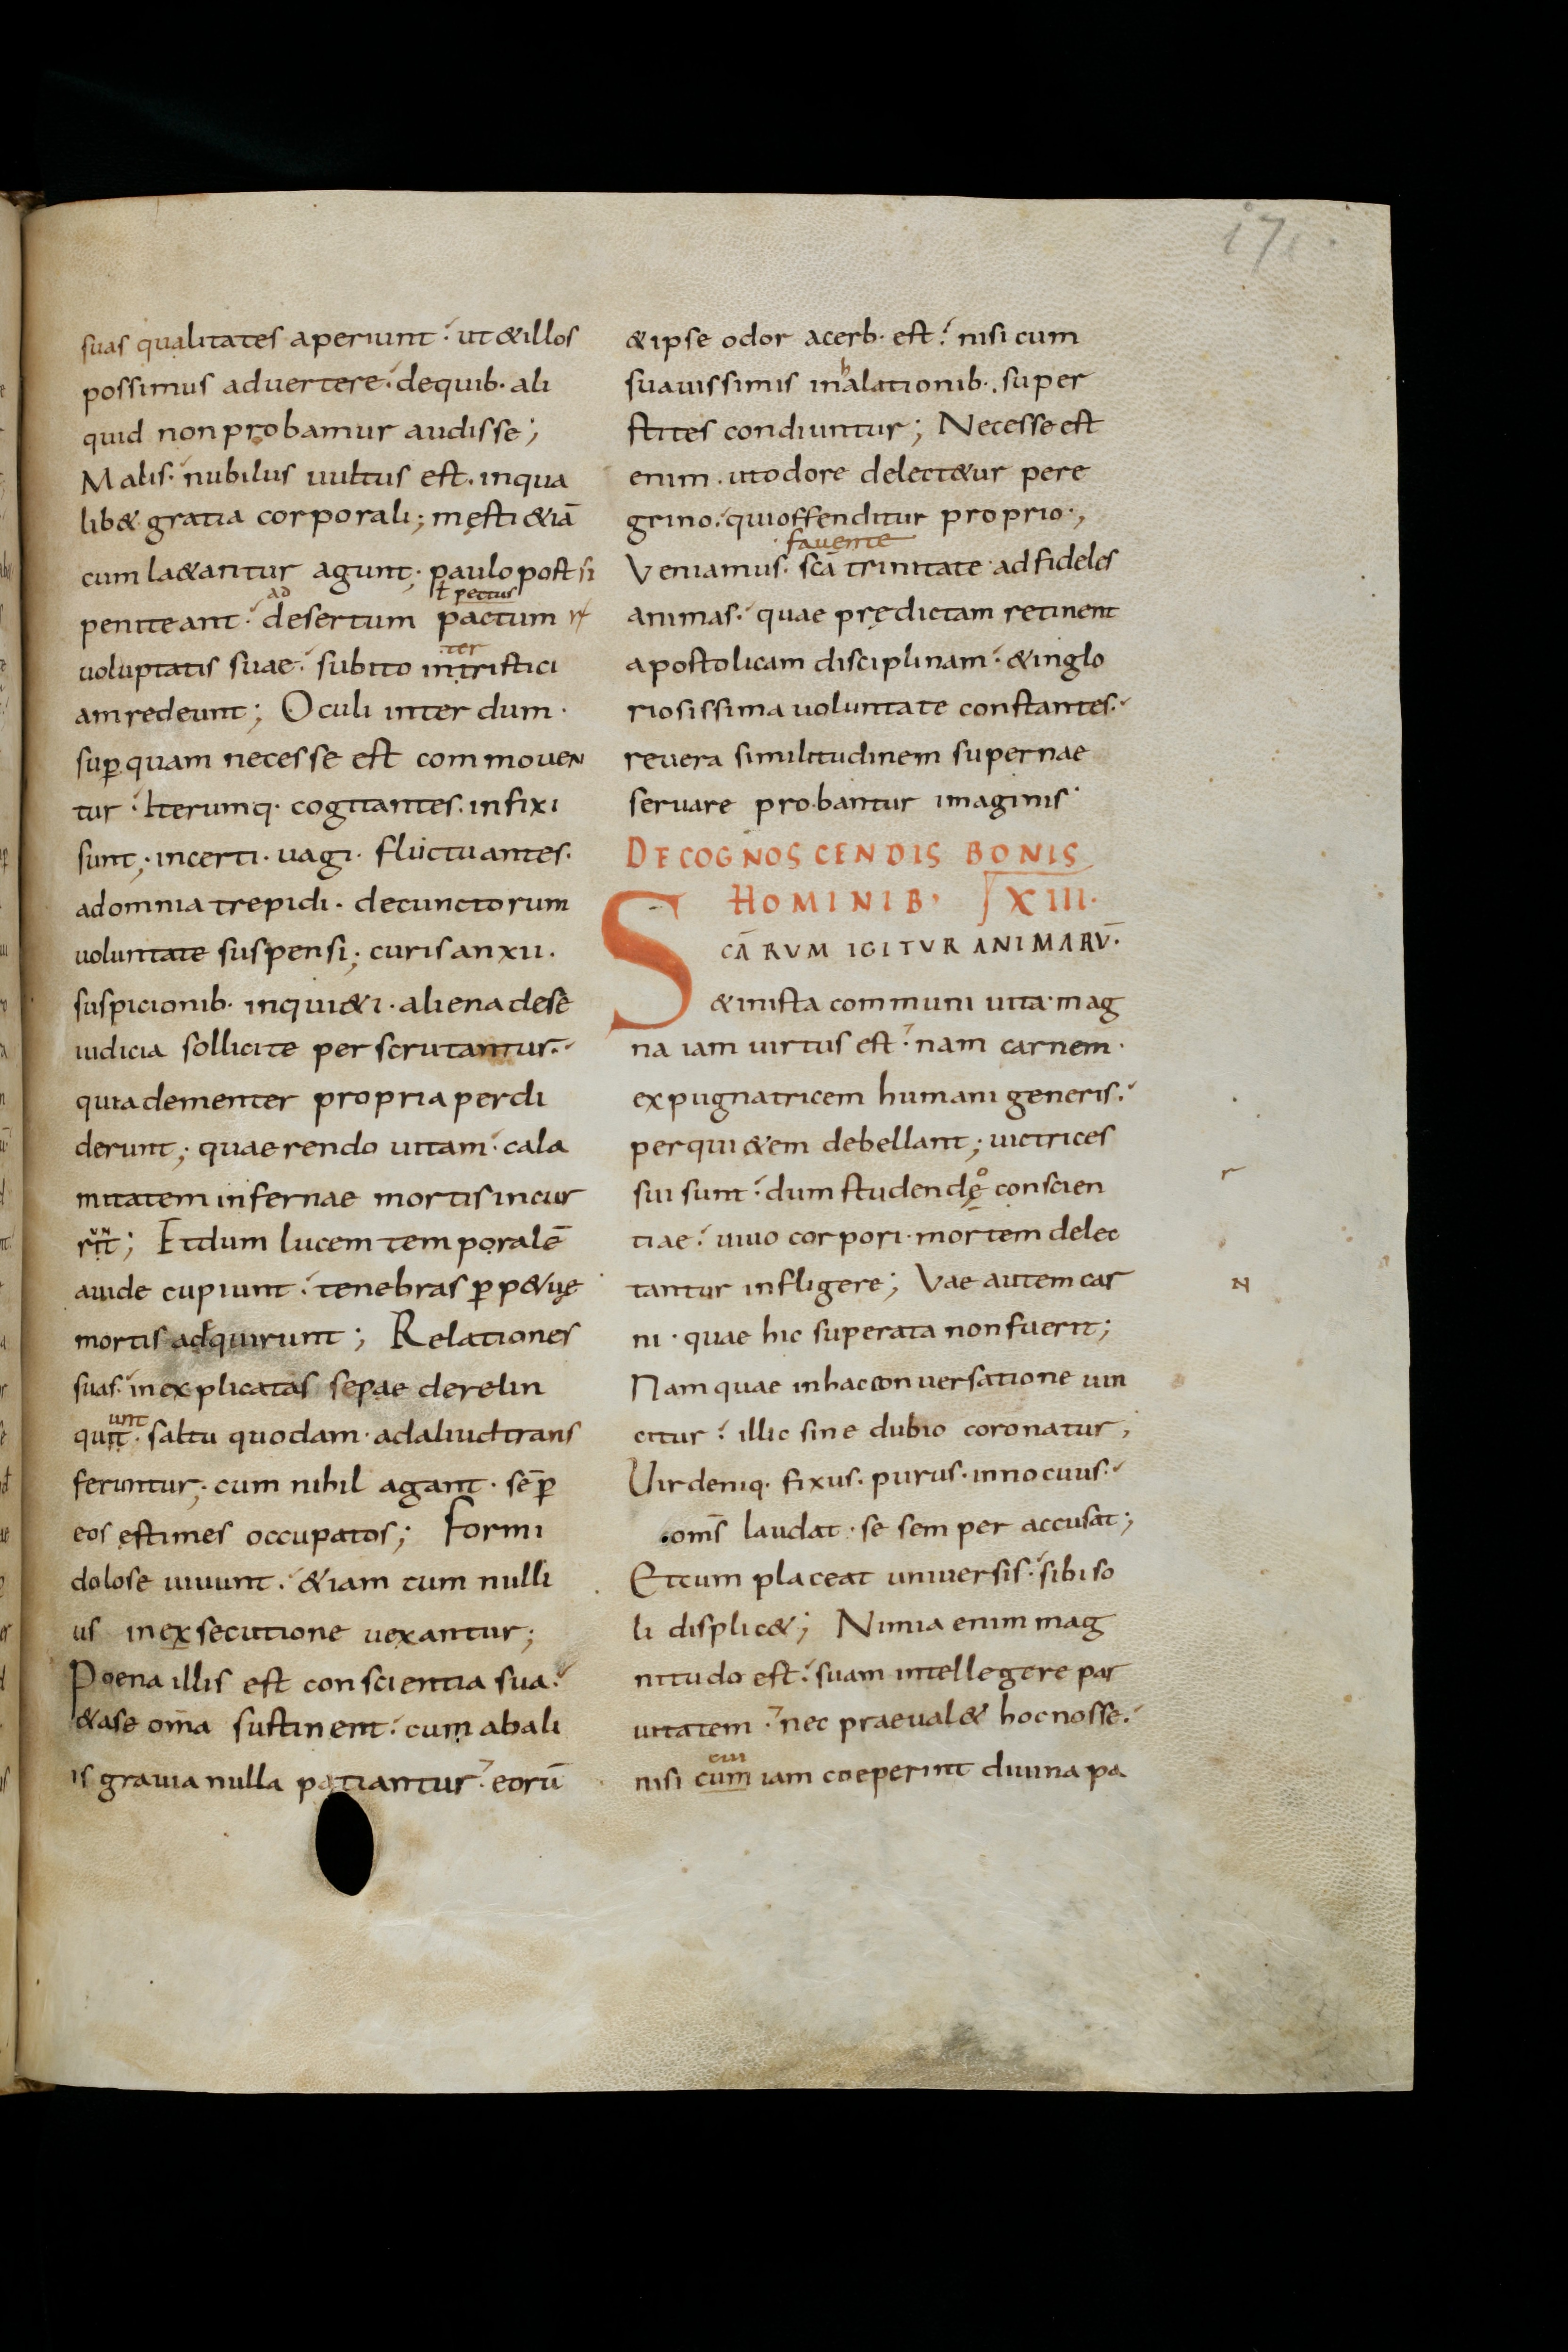 171
suas qualitates aperiunt · ut & illos
possimus aduertere · de quib· ali
quid non probamur audisse ;
Malis · nubilus uultus est · in qua
lib& gratia corporali ; męsti &iā
cum la&antur agunt · paulo post si
ł pectus
ad
peniteant · desertum pactum
ter
uoluptatis suae · subito in tristici
am redeunt ; Oculi inter dum ·
suꝑ quam necesse est commouen
tur · Iterumq· cogitantes · infixi
sunt ; incerti · uagi · fluctuantes ·
ad omnia trepidi · de cunctorum
uoluntate suspensi ; curis anxii ·
suspicionib· inqui&i · aliena de sē
iudicia sollicite perscrutantur ·
quia dementer propria perdi
derunt ; quaerendo uitam · cala
mitatem infernae mortis incur
rīt ; Et dum lucem temporalē
auide cupiunt · tenebras ꝑp&uę
mortis adquirunt ; Relationes
suas · inexplicatas sepae derelin
unt
quīt · saltu quodam · ad aliud trans
feruntur ; cum nihil agant · sēꝑ
eos ęstimes occupatos ; Formi
dolose uiuunt · &iam cum nulli
us in exsecutione uexantur ;
Poena illis est conscientia sua ·
& a se om̄a sustinent · cum ab ali
is grauia nulla patiantur · eorū
& ipse odor acerb· est · nisi cum
h
suauissimis inalationib· super
stites condiuntur ; Necesse est
enim · ut odore delect&ur pere
grino · qui offenditur proprio ·,
fauente
Veniamus · scā trinitate · ad fideles
animas · quae prędictam retinent
apostolicam disciplinam · & in glo
riosissima uoluntate constantes ·
reuera similitudinem supernae
seruare probantur imaginis ·
DE COGNOSCENDIS BONIS
HOMINIB· XIII ·
SCĀRVM IGITVR ANIMARV̄ ·
& in ista communi uita · mag
na iam uirtus est · nam carnem ·
expugnatricem humani generis ·
per qui&em debellant ; uictrices
o
sui sunt · dum studendę conscien
tiae · uiuo corpori · mortem delec
tantur infligere ; Vae autem car
ni · quae hic superata non fuerit ;
Nam quae in hac conuersatione uin
citur · illic sine dubio coronatur ,
Uir deniq· fixus · purus · innocuus ·
om̄s laudat · se semper accusat ;
Et cum placeat uniuersis · sibi so
li displic& ; Nimia enim mag
nitudo est · suam intellegere par
uitatem · nec praeual& hoc nosse ·
cui
nisi cum iam coeperint diuina pa
r
N